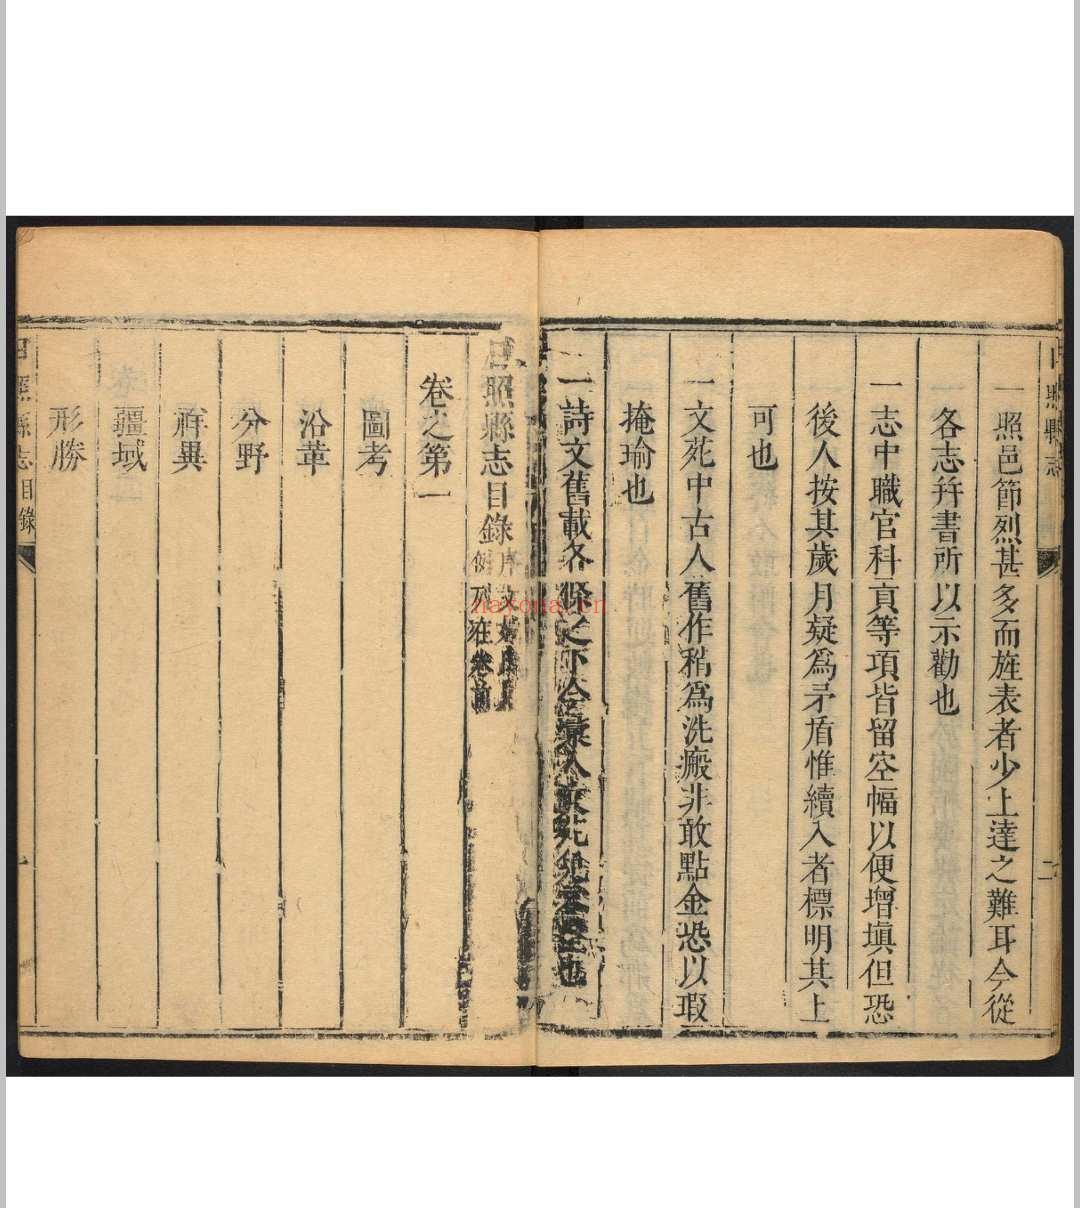 日照縣志
二
一照邑節烈甚多而旌表者少上達之難耳今從
各志幷書所以示勸也
一志中職官科貢等項皆留空幅以便增塡但恐
後人按其歲月疑爲矛盾惟續入者標明其上
可也
一文苑中古人舊作稍爲洗瘢非敢點金恐以瑕
掩瑜也
一詩文舊載各條之下今彙入文苑
也
日照縣志目錄
序
例列在卷首
卷之第一
圖考
沿革
分野
祥異
疆域
形勝
日照縣志
目錄
nayona.cn